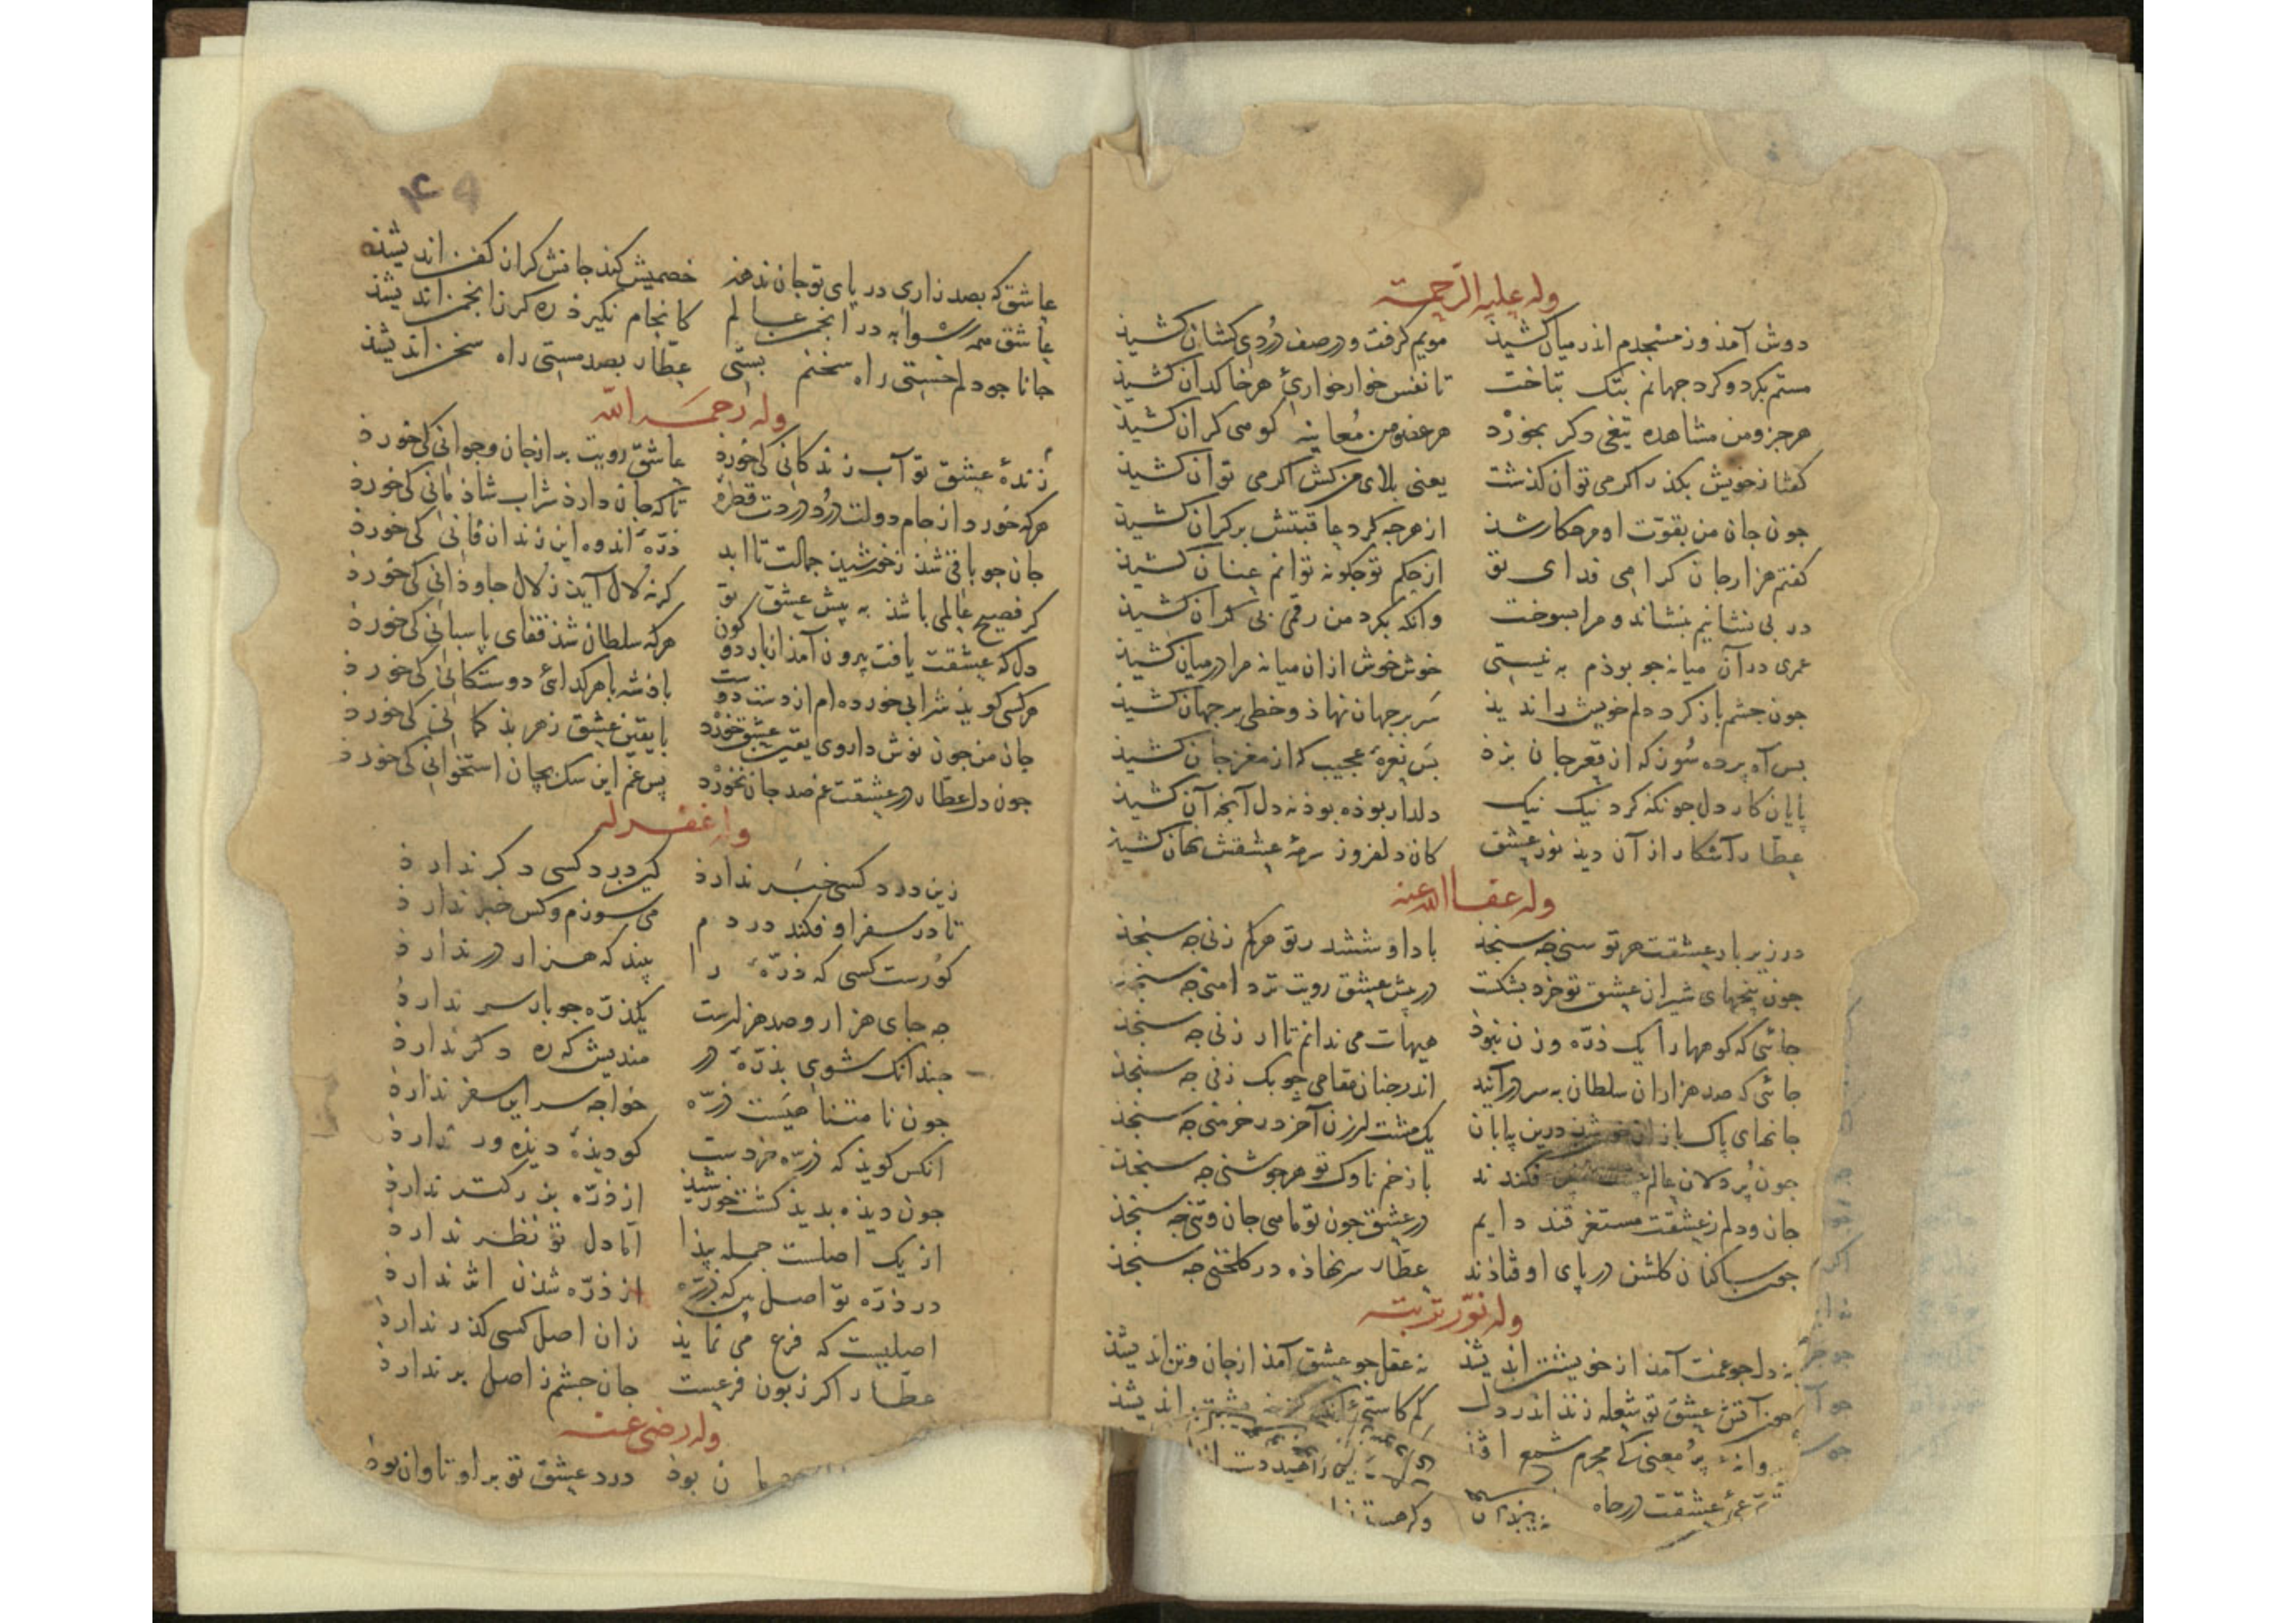 وله علیه الرحمة
دوش آمذ وز مسجدم اندر میان کشیذ مویم کرفت و در صف دُردی کشان کشیذ
مستم بکرد و کرد جهانم بتک بتاخت تا نفس خوار خواریٔ هر خاکدان کشیذ
هر جزو من مشاهده تیغی دکر بخوژد هر عضو من مُعاینه کوهی کران کشیذ
کفتا ز خویش بکذر اکر می توان کذشت یعنی بلای من کش اکر می توان کشیذ
جون جان من بقوّت او مرد کار شذ از هرجه کرد عاقبتش بر کران کشیذ
کفتم هزار جان کرامی فدای تو از حکم تو جکونه توانم عنان کشیذ
در بی نشانیم بنشاند و مرا بسوخت وانکه بکرد من رقمی بی کران کشیذ
عمری در آن میانه جو بوذم به نیستی خوش خوش ازان میانه مرا در میان کشیذ
جون جشم باز کرد دلم خویش را ندیذ سَر بر جهان نهاذ و خطی بر جهان کشیذ
بس آه پرده سُوز که از قعر جان بزذ بَس نعرهٔ عجیب که از مغز جان کشیذ
پایان کار دل جو نکه کرد نیک نیک دلدار بوذه بوذ نه دل آنجه آن کشیذ
عطّار آشکار از آن دیذ نور عشق کان دلفروز سرمهٔ عشقش نهان کشیذ
وله عفا الله عنه
در زیر بار عشقت هر تو سنی جه سنجذ با داو ششدر تو هر کم زنی جه سنجذ
جون پنجهای شیران عشق تو خرد بشکست در پیش عشق رویت تردامنی جه سنجذ
جائی که کوهها را یک ذرّه وزن نبوذ هیهات می ندانم تا ارزنی جه سنجذ
جائی که صد هزاران سلطان به سر درآیند اندر جنان مقامی جوبک زنی جه سنجذ
جانهای پاک بازان خون شذ درین بیابان یک مشت ارزن آخر در خرمنی جه سنجذ
جون پُردلان عالم پیشت سپر فکندند با زخم ناوک تو هر جوشنی جه سنجذ
جان و دلم ز عشقت مستغرقند دایم در عشق جون تو مامی جان و تنی جه سنجذ
جون ساکنان کلشن در پای اوفتاذند عطّار سر نهاذه در کلخنی جه سنجذ
وله نوّر تربته
نه دل جو غمت آمذ از خویشتن اندیشذ نه عقل جو عشق آمذ از جان و تن اندیشذ
جون آتش عشق تو شعله زند اندر دل
پروانهٔ پُر معنی کی محرم شمع افتذ
عشقت در جاه
عاشق که بصد زاری در پای تو جان ندهذ خصمیش کند جانش کران کفن اندیشذ
عاشق همه رسوا به در انجمن عالم کانجام نکیرذ ره کر ز انجمن اندیشذ
جانا جو دلم خستی راه سخنم بستی عطّار بصد مستی راه سخن اندیشذ
وله رحمه الله
زندهٔ عشق تو آب زندکانی کی خورذ عاشق رویت بر از جان و جوانی کی خورد
هرکه خورد از جام دولت دُرد دردت قطرهٔ تا که جان دارذ شراب شاذمانی کی خورذ
جان جو باقی شذ ز خورشید جمالت تا ابد ذرّهٔ اندوه این زندان فانی کی خورذ
کر فصیح عالمی باشذ به پیش عشق تو کر نه لال آید زلال جاوذانی کی خورذ
دل که عشقت یافت بیرون آمذ از بار دو کون هرکه سلطان شذ قفای پاسبانی کی خورذ
هر کسی کویذ شرابی خورده ام از دست دوست باذشه با هر کدائی دوستکانی کی خورد
جان من جون نوش داروی یقین عشق خوژد با یقین عشق زهر بذ کمانی کی خورذ
جون دل عطّار در عشقت غم صد جان نخوژد پس غم این سک بچان استخوانی کی خورذ
وله غفر له
زین درد کسی خبَر ندارذ کین درد کسی دکر ندارذ
تا در سفر اوفکند دردم می سوزم و کس خبر ندارذ
کوُرست کسی که ذرّهٔ را بیند که هزار در ندارذ
جه جای هزار و صد هزارست یکذرّه جو با سر ندارذ
جندانک شوی بذرّهٔ در مندیش که ره دکر ندارذ
جون نا متناهیَست ذرّه خواجه سر این سفر ندارذ
آنکس کویذ که ذرّه خردست کو دیذهٔ دیذه ور ندارذ
جون دیذه بدیذ کشت خورشیذ از ذرّه بزرکتر ندارذ
از یک اصلست جمله پیذا امّا دل تو نظر ندارذ
در ذرّه تو اصل بین که ذرّه از ذرّه شذن اثر ندارذ
اصلیست که فرع می نمایذ زان اصل کسی کذر ندارذ
عطّار اکر زبون فرعست جان جشم ز اصل بر ندارذ
وله رضی عنه
ن بوذ درد عشق تو بر او تاوان بوذ